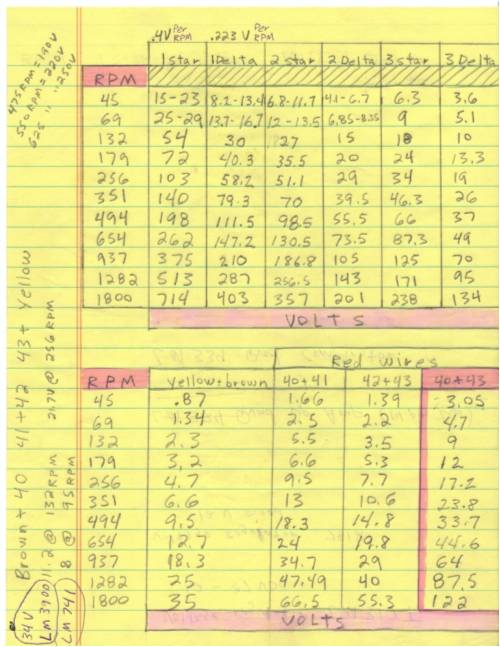 .4V Per RPM .223 V Per RPM
1 star 1 Delta 2 star 2 Delta 3 star 3 Delta
RPM
45 15-23 8.2-13.4 6.8-11.7 4.1-6.7 6.3 3.6
69 25-29 13.7-16.7 12-13.5 6.85-8.35 9 5.1
132 54 30 27 15 18 10
179 72 40.3 35.5 20 24 13.3
256 103 58.2 51.1 29 34 19
351 140 79.3 70 39.5 46.3 26
494 198 111.5 98.5 55.5 66 37
654 262 147.2 130.5 73.5 87.3 49
937 375 210 186.8 105 125 70
1282 513 287 256.5 143 171 95
1800 714 403 357 201 238 134
VOLTS
Red wires
RPM yellow+brown 40+41 42+43 40+43
45 .87 1.66 1.39 3.05
69 1.34 2.5 2.2 4.7
132 2.3 5.5 3.5 9
179 3,2 6.6 5.3 12
256 4.7 9.5 7.7 17.2
351 6.6 13 10.6 23.8
494 9.5 18.3 14.8 33.7
654 12.7 24 19.8 44.6
937 18.3 34.7 29 64
1282 25 47.49 40 87.5
1800 35 66.5 55.3 122
VOLTS
475 RPM = 190V
550 RPM = 220V
625 " " 250V
Brown + 40 41+42 43+ Yellow
21.7V @ 256 RPM
34V
LM3900 11.2 @ 132 RPM
LM741 8 @ 95 RPM